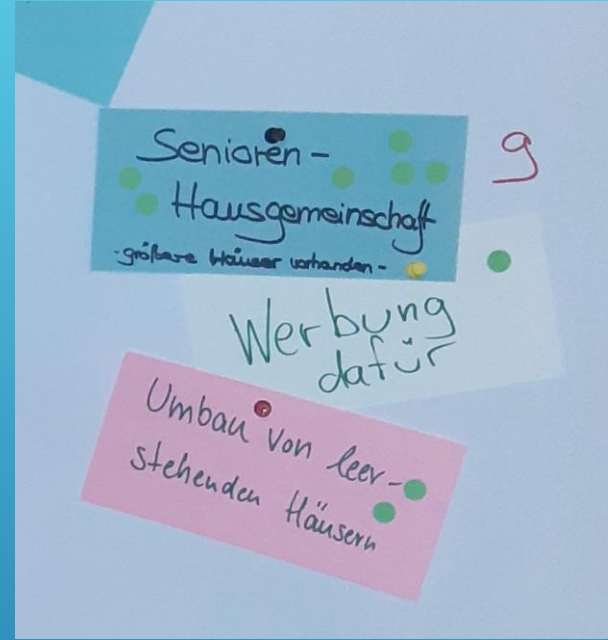 Senioren-
Hausgemeinschaft
-größere Häuser vorhanden-
9
Werbung
dafür
Umbau von leer-
stehenden Häusern